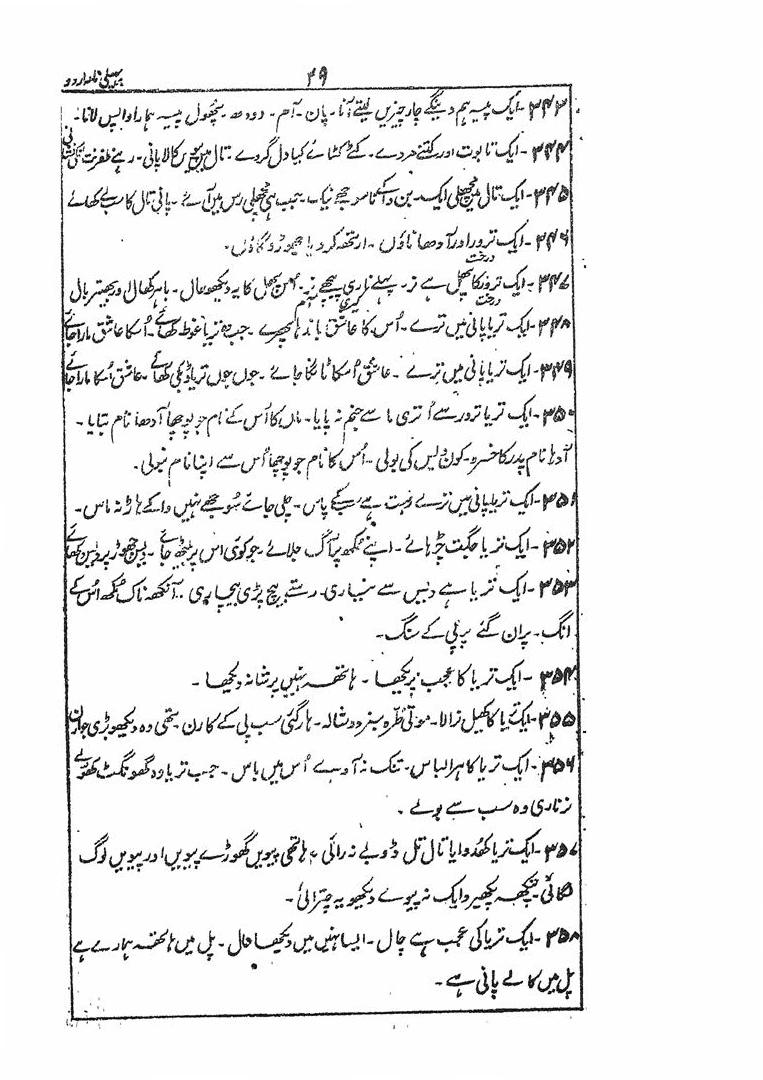 پہیلی نامہ اردو
۳۹
۳۴۳۔ ایک پیسہ ہم دینگے چار چیزیں لیتے آنا۔ پان۔ آم۔ دودھ۔ پھول پیسہ ہمارا واپس لانا۔
۳۴۴۔ ایک تابوت اور کتنے مردے۔ کٹے کٹائے کیا دل گردے۔ تال میں کالا پانی۔ رہے ظفرنت نشانی
۳۴۵۔ ایک تال میں مچھلی ایک۔ بن واکے ناسوجھے نیک۔ جب ہی مچھلی رس میں آئے۔ پانی تال کا سب لے کھائے
۳۴۶۔ ایک تروراور آدھا ناؤں۔ ارتھ کر دیا چھوڑو گاؤں۔
درخت
۳۴۷۔ ایک ترور کا پھل ہے تر۔ پہلے ناری پیچھے نر۔ اس پھل کا یہ دیکھو حال۔ باہر کھال اور بھیتر بال
درخت
۳۴۸۔ ایک تریا پانی میں ترے۔ اُس کا عاشق باندھا پھرے۔ جب وہ تریا غوطہ کھائے۔ اُسکا عاشق مارا جائے
۳۴۹۔ ایک تریا پانی میں ترے۔ عاشق اُسکا ٹانگا جائے۔ جوں جوں تریا ڈبکی کھائے۔ عاشق اُسکا مارا جائے
۳۵۰۔ ایک تریا ترور سے اُتری ما سے جنم نہ پایا۔ ماں کا اُس کے نام جو پوچھا آدھا نام بتایا۔
آدھا نام پدر کا خسرو۔ کون دیس کی بولی۔ اُس کا نام جو پوچھا اُس سے اپنا نام نبولی۔
۳۵۱۔ ایک تریا پانی میں ترے نت ہے سبکے پاس۔ چلی جائے سوجھے نہیں واکے ہاڑ نہ ماس۔
۳۵۲۔ ایک تریا جگت چڑھائے۔ اپنے مکھ پر آگ جلائے۔ جو کوی اس پر بیٹھ جائے۔ دیس چھوڑ پردیس کھائے
۳۵۳۔ ایک تریا ہے دیس سے نیاری۔ رستے بیچ پڑی بیچاری۔ آنکھ ناک مکھ اُس کے
انگ۔ پران گئے پر پی کے سنگ۔
۳۵۴۔ ایک تریا کا عجب پریکھا۔ ہاتھ نہیں پر شانہ دیکھا۔
۳۵۵۔ ایک تریا کا کھیل نرالا۔ موتی طرہ سبز دوشالہ۔ ہار گئی سب پی کے کارن۔ تھی وہ دیکھو بڑی جوارن
۳۵۶۔ ایک تریا کا ہرا لباس۔ تنک نہ آوے اُس میں باس۔ جب تریا وہ گھونگٹ کھولے
نرناری وہ سب سے بولے۔
۳۵۷۔ ایک تریا کھدوایا تال تل ڈوبے نہ رائی۔ ہاتھی پیویں گھوڑے پیویں اور پیویں لوگ
لگائی۔ پنکھ پکھیرو ایک نہ پیوے دیکھو یہ چترائی۔
۳۵۸۔ ایک تریا کی عجب ہے چال۔ ایسا نہیں میں دیکھا حال۔ پل میں ہاتھ ہمارے ہے
پل میں کالے پانی ہے۔